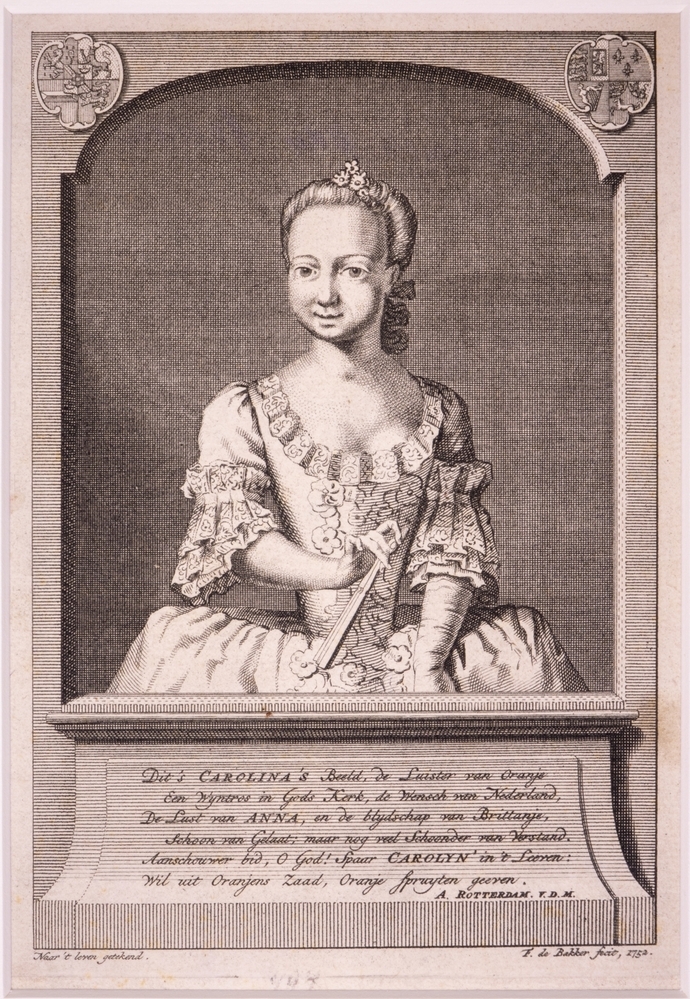 Dit's CAROLINA'S Beeld, de Luister van Oranje
Een Wyntros in Gods Kerk, de Wensch van Nederland,
De Lust van ANNA, en de blydschap van Brittanje,
Schoon van Gelaat; maar nog veel Schoonder van Verstand.
Aanschouwer bid, O God! Spaar CAROLYN' in 't Leeven:
Wil uit Oranjens Zaad, Oranje spruyten geeven.
A. ROTTERDAM. V. D. M.
Naar 't leven getekend.
F. de Bakker fecit, 1752.